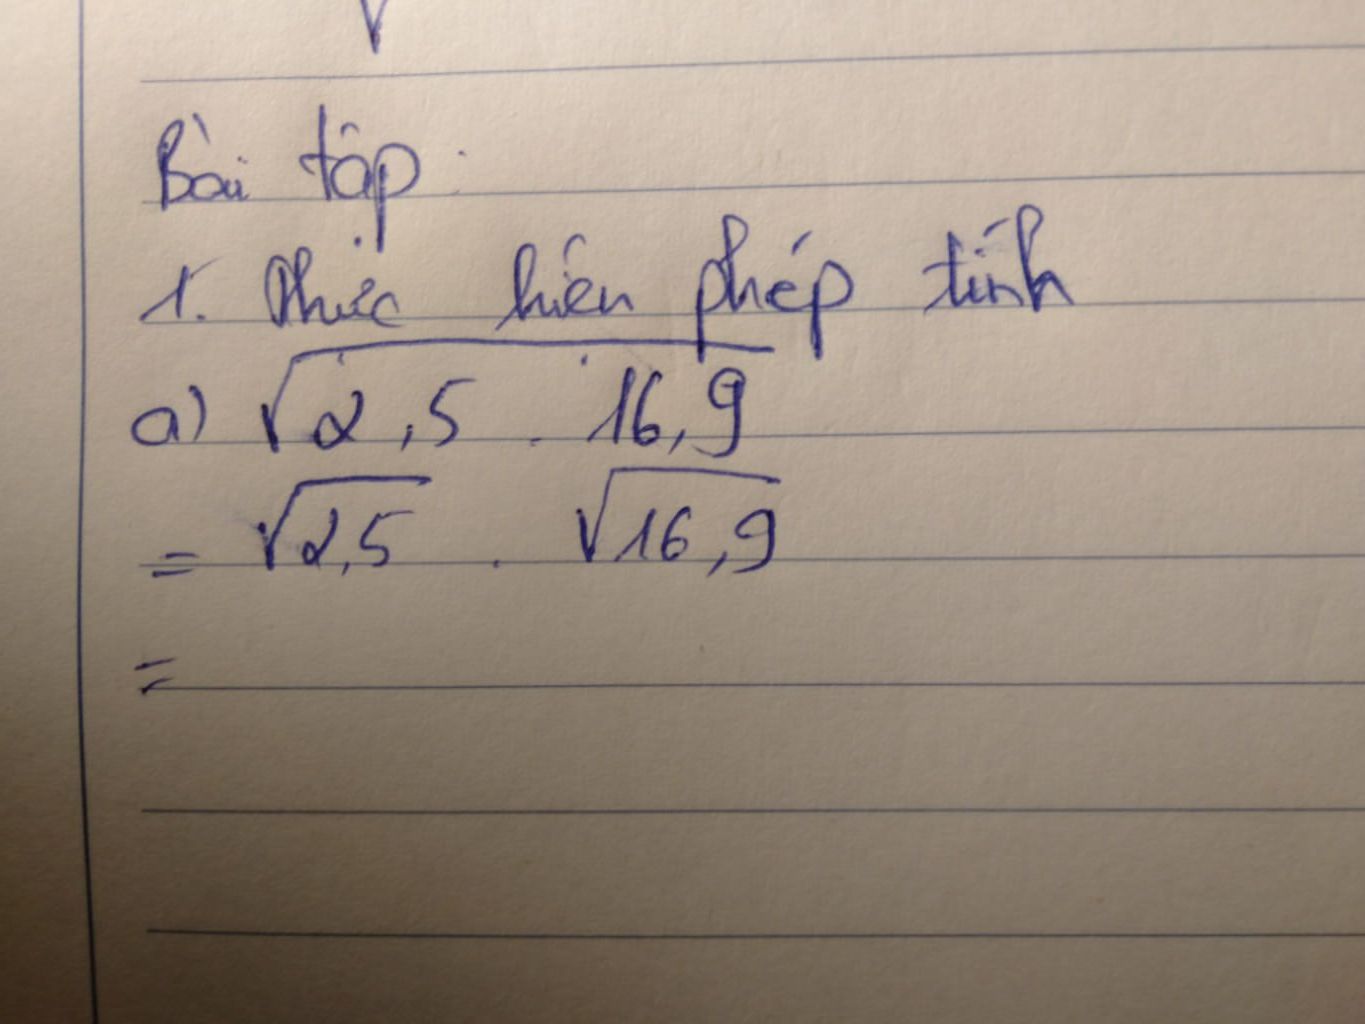 Bài tập:
1. Thực hiện phép tính
a) √2,5 . 16,9
= √2,5 . √16,9
=